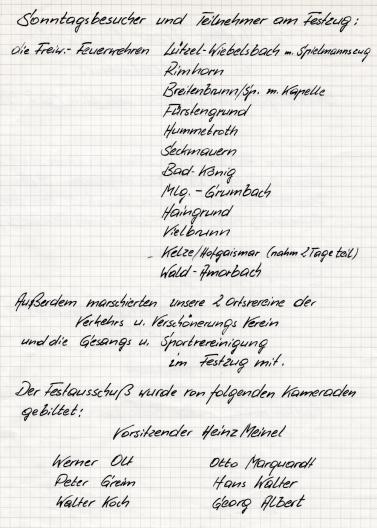 Sonntagsbesucher und Teilnehmer am Festzug:
die Freiw.- Feuerwehren Lützel-Wiebelsbach m. Spielmannszug
Rimhorn
Breitenbrunn/Sp. m. Kapelle
Fürstengrund
Hummetroth
Seckmauern
Bad-König
Mlg.-Grumbach
Haingrund
Vielbrunn
Kelze/Hofgaismar (nahm 2 Tage teil)
Wald-Amorbach
Außerdem marschierten unsere 2 Ortsvereine der
Verkehrs u. Verschönerungs Verein
und die Gesangs u. Sportvereinigung
im Festzug mit.
Der Festausschuß wurde von folgenden Kameraden
gebiltet:
Vorsitzender Heinz Meinel
Werner Olt Otto Marquardt
Peter Greim Hans Walter
Walter Koch Georg Albert